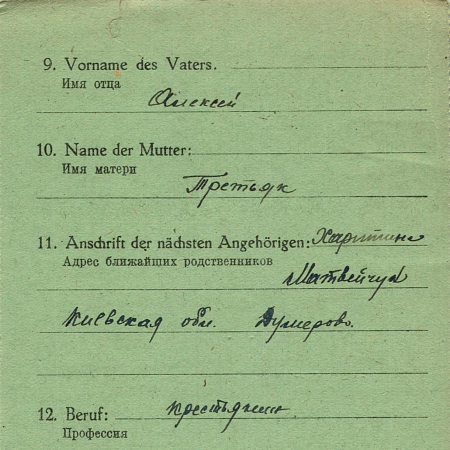 9. Vorname des Vaters.
Имя отца
Алексей
10. Name der Mutter:
Имя матери
Третьяк
11. Anschrift der nächsten Angehörigen: Харитина
Адрес ближайших родственников
Матвейчук
Киевская обл. Думерово.
12. Beruf: крестьянин
Профессия